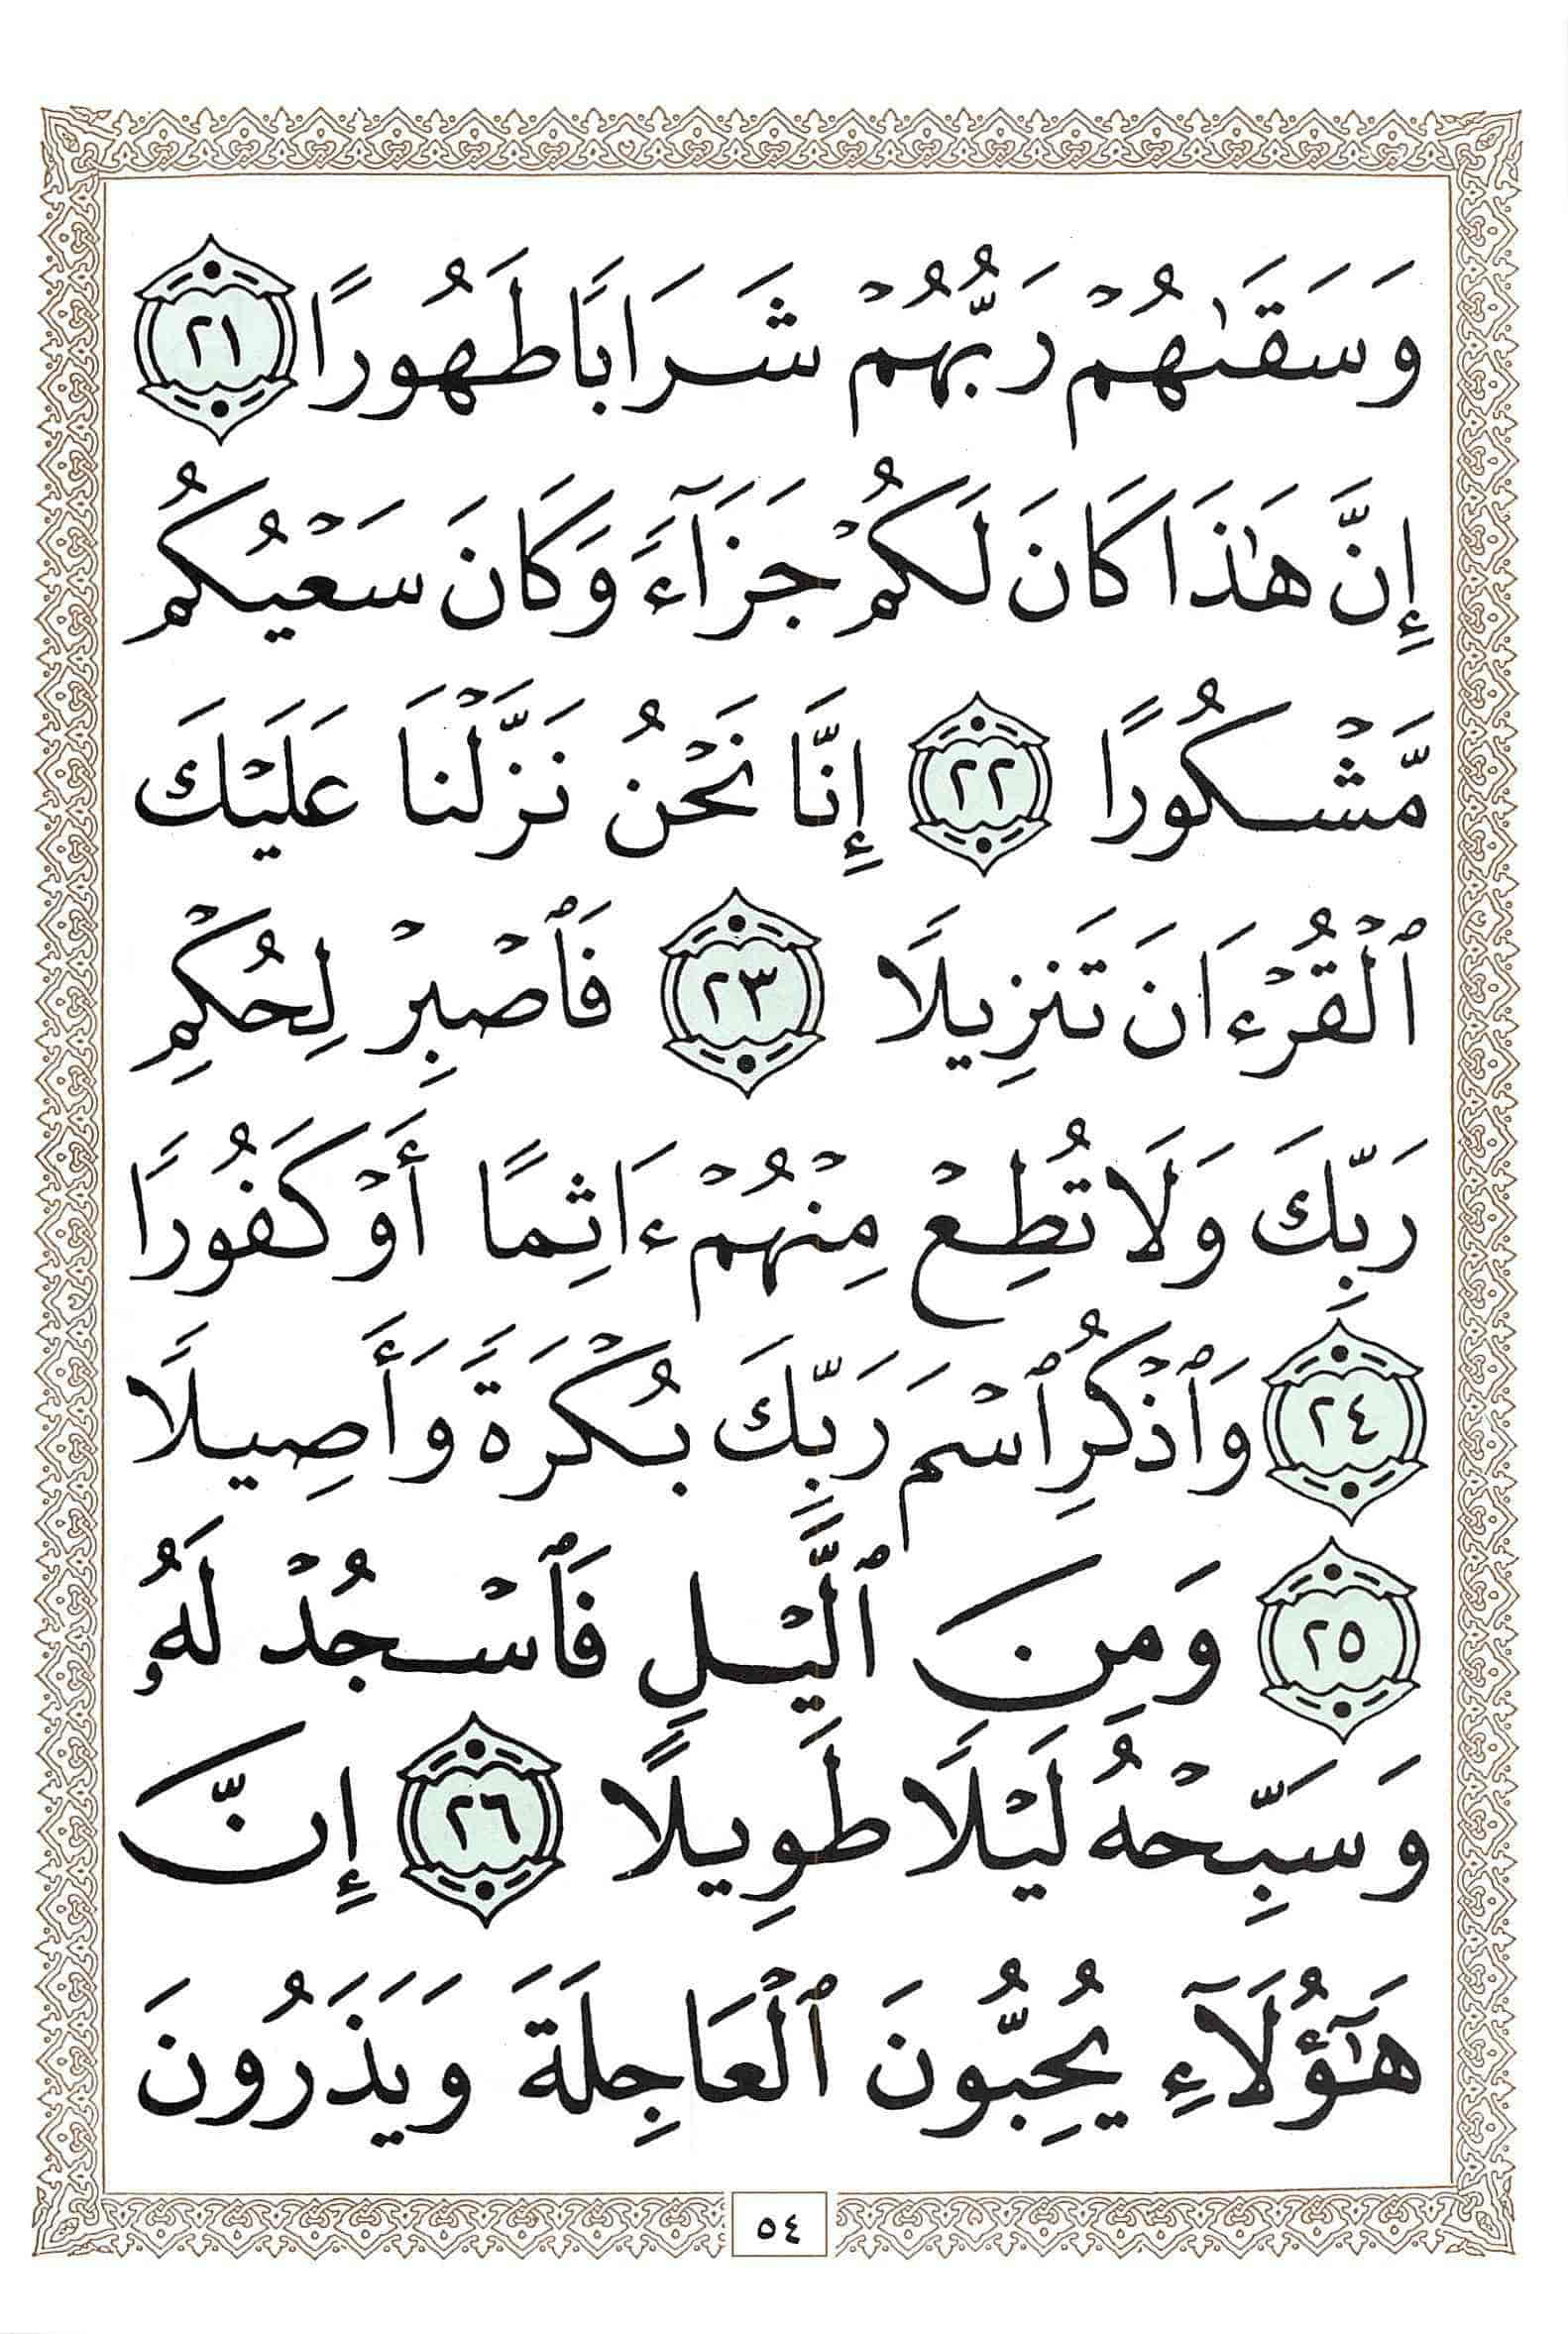 وَسَقَىٰهُمْ رَبُّهُمْ شَرَابًا طَهُورًا ٢١
إِنَّ هَٰذَا كَانَ لَكُمْ جَزَآءً وَكَانَ سَعْيُكُم
مَّشْكُورًا ٢٢ إِنَّا نَحْنُ نَزَّلْنَا عَلَيْكَ
ٱلْقُرْءَانَ تَنزِيلًا ٢٣ فَٱصْبِرْ لِحُكْمِ
رَبِّكَ وَلَا تُطِعْ مِنْهُمْ ءَاثِمًا أَوْ كَفُورًا
٢٤ وَٱذْكُرِ ٱسْمَ رَبِّكَ بُكْرَةً وَأَصِيلًا
٢٥ وَمِنَ ٱلَّيْلِ فَٱسْجُدْ لَهُۥ
وَسَبِّحْهُ لَيْلًا طَوِيلًا ٢٦ إِنَّ
هَٰٓؤُلَآءِ يُحِبُّونَ ٱلْعَاجِلَةَ وَيَذَرُونَ
٥٤